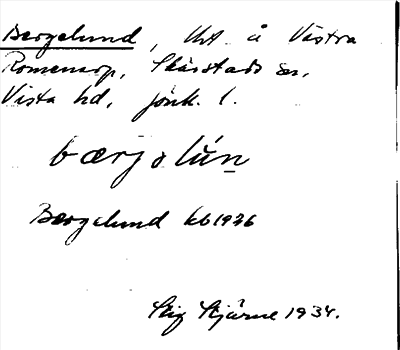 Bergelund, Uht. å Västra
Romensorp, Skärstads sn,
Vista hd, Jönk. l.
bærjolún
Bergelund kb 1936
Stig Stjärne 1934.